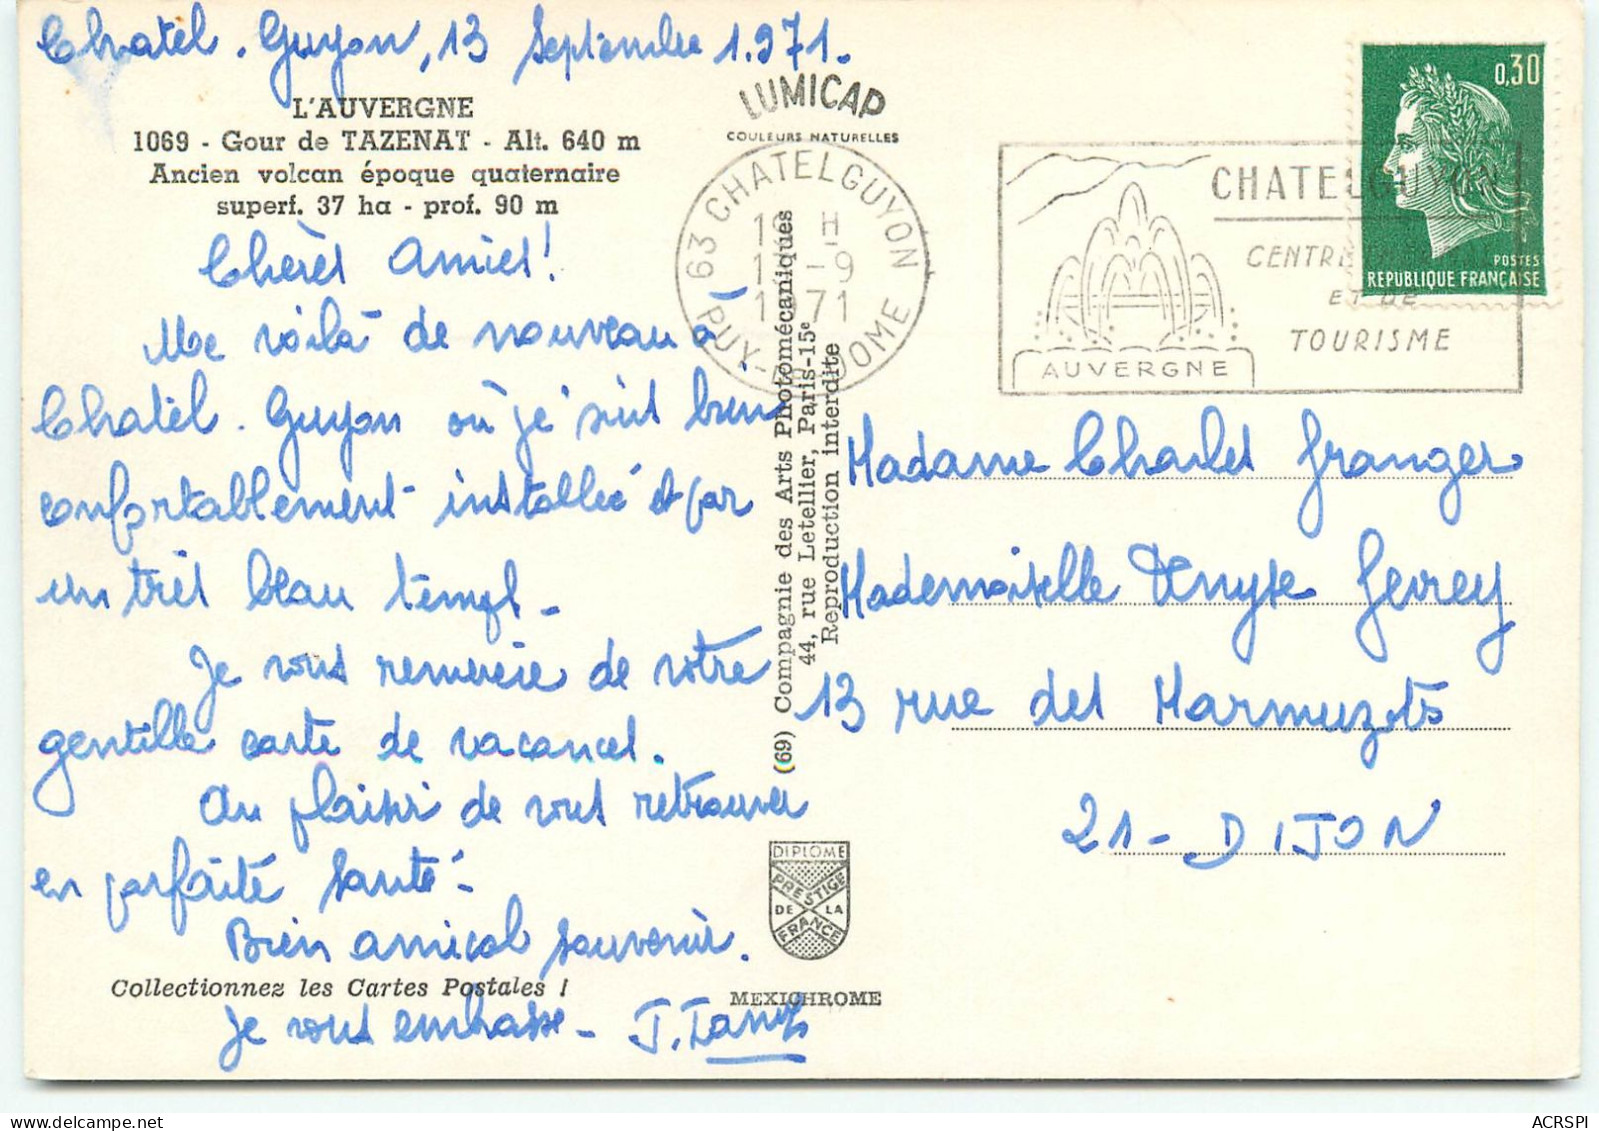 Chatel-Guyon, 13 Septembre 1.971.
L'AUVERGNE
1069 - Gour de TAZENAT - Alt. 640 m
Ancien volcan époque quaternaire
superf. 37 ha - prof. 90 m
Chères Amies!
Me voilà de nouveau à
Chatel-Guyon où je suis bien
confortablement installée et par
un très beau temps -
Je vous remercie de votre
gentille carte de vacances.
Au plaisir de vous retrouver
en parfaite santé -
Bien amical souvenir.
Collectionnez les Cartes Postales !
Je vous embrasse - J.
LUMICAP
COULEURS NATURELLES
63 CHATELGUYON
H
-9
1971
PUY-DE-DOME
(69) Compagnie des Arts Photomécaniques
44, rue Letellier, Paris-15e
Reproduction interdite
DIPLOME
PRESTIGE
DE LA
FRANCE
MEXICHROME
CHATELGUYON
CENTRE
ET DE
TOURISME
AUVERGNE
0,30
POSTES
REPUBLIQUE FRANÇAISE
Madame Charles Granger
Mademoiselle Denyse Gevrey
13 rue des Marmuzots
21 - DIJON
ACRSPI